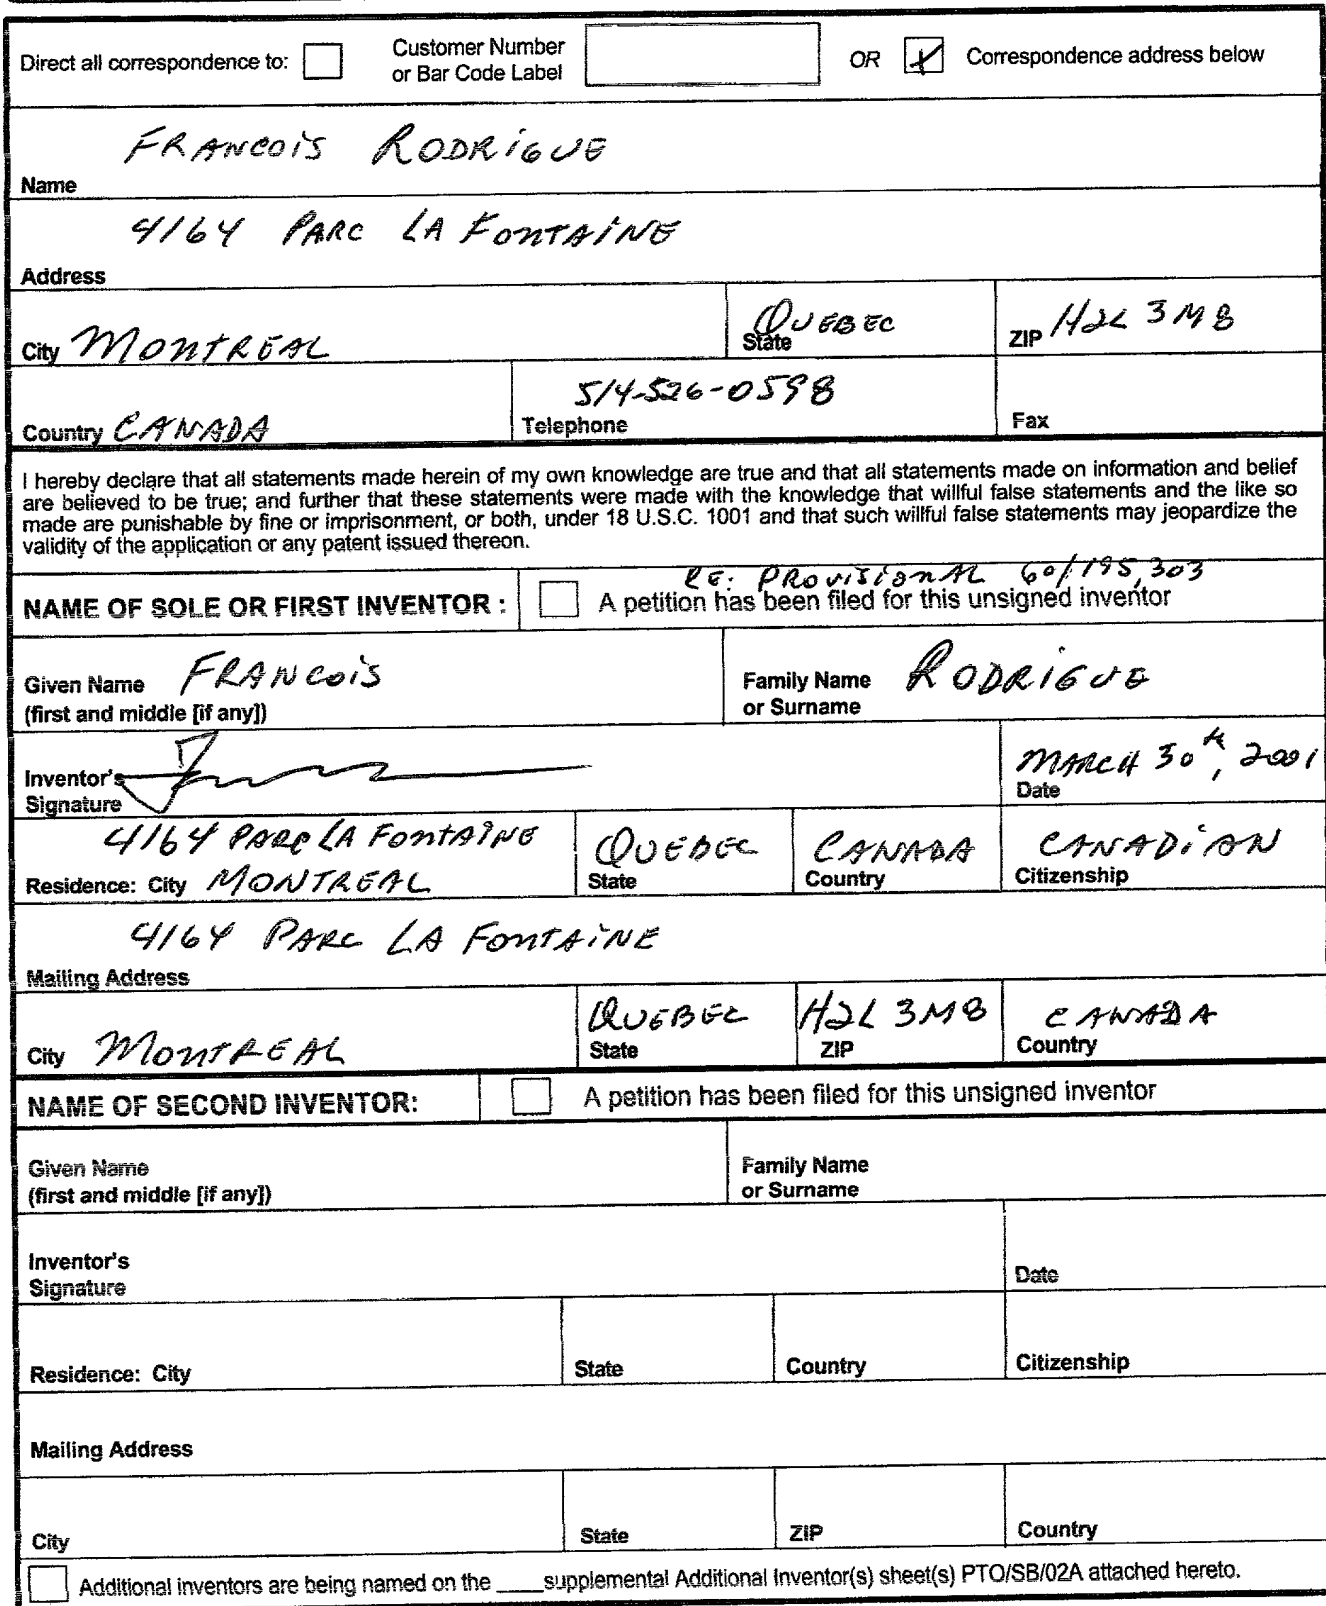 Direct all correspondence to: Customer Number or Bar Code Label OR Correspondence address below
FRANCOIS RODRIGUE
Name
4164 PARC LA FONTAINE
Address
City MONTREAL QUEBEC State ZIP H2L 3M8
Country CANADA 514-526-0598 Telephone Fax
I hereby declare that all statements made herein of my own knowledge are true and that all statements made on information and belief
are believed to be true; and further that these statements were made with the knowledge that willful false statements and the like so
made are punishable by fine or imprisonment, or both, under 18 U.S.C. 1001 and that such willful false statements may jeopardize the
validity of the application or any patent issued thereon.
RE: PROVISIONAL 60/195,303
NAME OF SOLE OR FIRST INVENTOR : A petition has been filed for this unsigned inventor
Given Name FRANCOIS Family Name RODRIGUE
(first and middle [if any]) or Surname
Inventor's MARCH 30th, 2001
Signature Date
4164 PARC LA FONTAINE QUEBEC CANADA CANADIAN
Residence: City MONTREAL State Country Citizenship
4164 PARC LA FONTAINE
Mailing Address
QUEBEC H2L 3M8 CANADA
City MONTREAL State ZIP Country
NAME OF SECOND INVENTOR: A petition has been filed for this unsigned inventor
Given Name Family Name
(first and middle [if any]) or Surname
Inventor's
Signature Date
Residence: City State Country Citizenship
Mailing Address
City State ZIP Country
Additional inventors are being named on the ____supplemental Additional Inventor(s) sheet(s) PTO/SB/02A attached hereto.